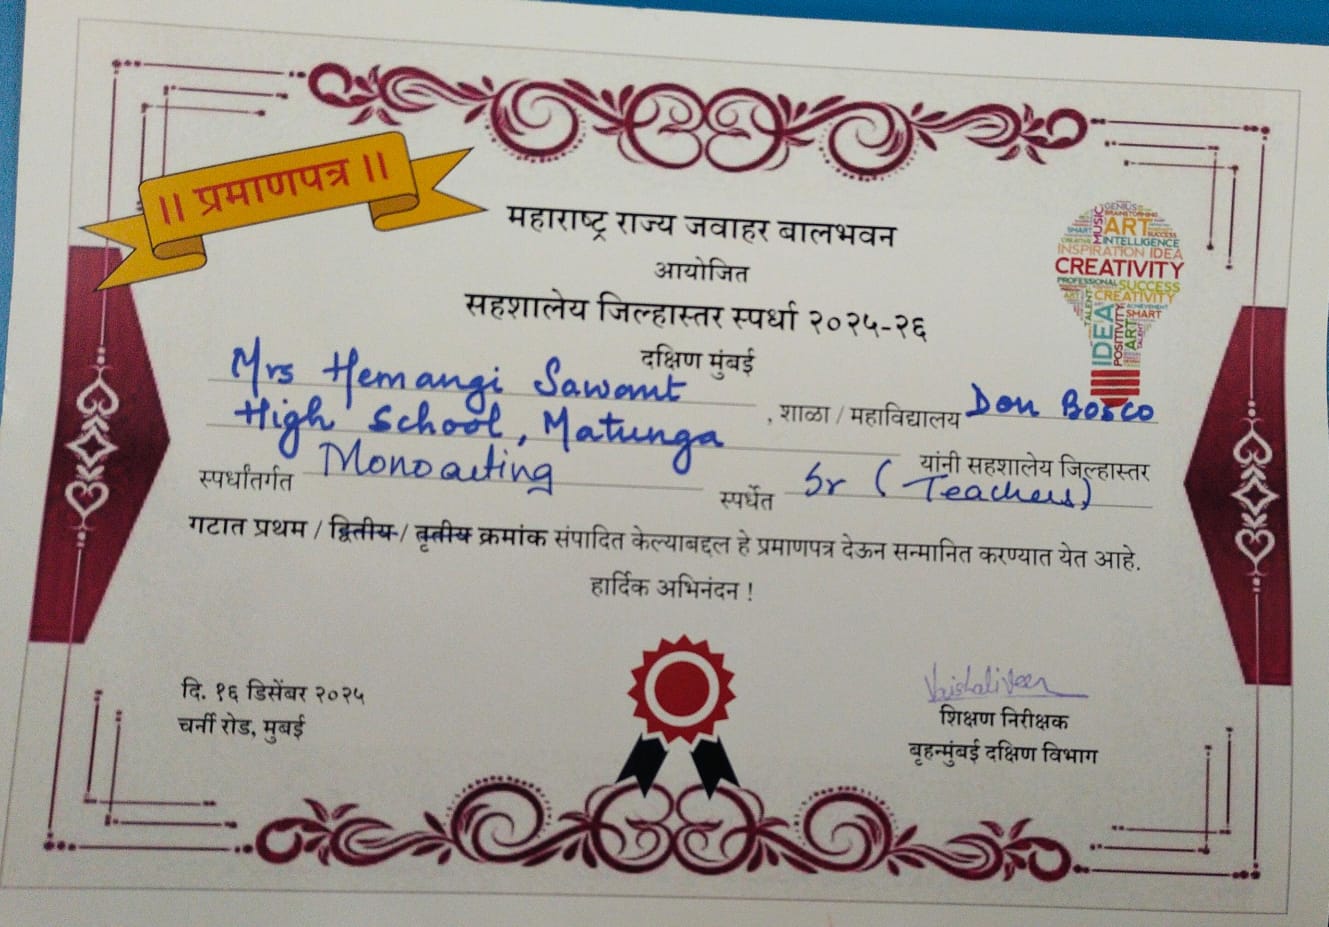 || प्रमाणपत्र ||
महाराष्ट्र राज्य जवाहर बालभवन
आयोजित
सहशालेय जिल्हास्तर स्पर्धा २०२५-२६
दक्षिण मुंबई
GENIUS
BRAINSTORMING
MUSIC
ART
SMART
SUCCESS
CREATIVE
INTELLIGENCE
INSPIRATION IDEA
CREATIVITY
PROFESSIONAL SUCCESS
ART
CREATIVITY
TALENT
ACHIEVEMENT
IDEA
POSITIVITY
SMART
ART
TALENT
Mrs Hemangi Sawant , शाळा / महाविद्यालय Don Bosco
High School, Matunga यांनी सहशालेय जिल्हास्तर
स्पर्धांतर्गत Monoacting स्पर्धेत Sr (Teachers)
गटात प्रथम / द्वितीय / तृतीय क्रमांक संपादित केल्याबद्दल हे प्रमाणपत्र देऊन सन्मानित करण्यात येत आहे.
हार्दिक अभिनंदन !
दि. १६ डिसेंबर २०२५
चर्नी रोड, मुबई
Vaishali Veer
शिक्षण निरीक्षक
बृहन्मुंबई दक्षिण विभाग